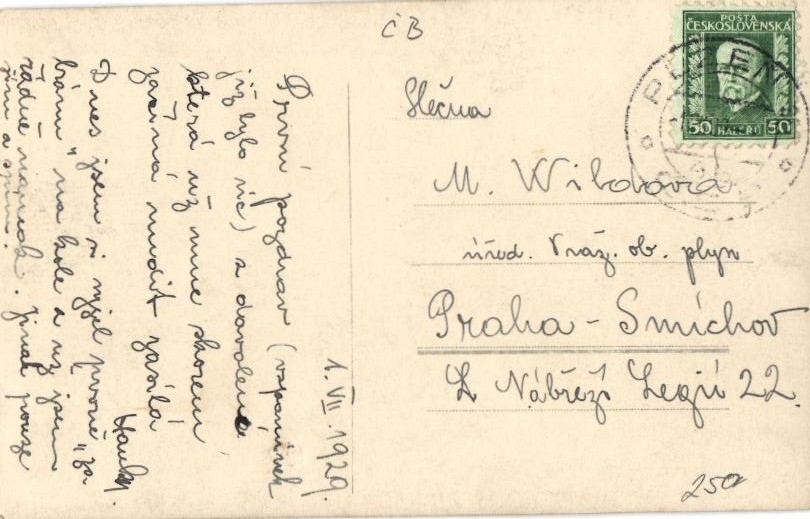 ČB
POSTA
ČESKOSLOVENSKÁ
50 HALÉŘŮ 50
Slečna
M. Wildova
úřed. Praž. ob. plyn
Praha - Smíchov
Nábřeží Legií 22.
250
1. VII. 1929.
První pozdrav (vzpomínek
již bylo víc) z dovolené
která už mne skorem
začíná nudit zasílá
Dnes jsem si vyjel prvně "za
bránu" na kole a už jsem
řádně. Jinak pouze
jím a spím.